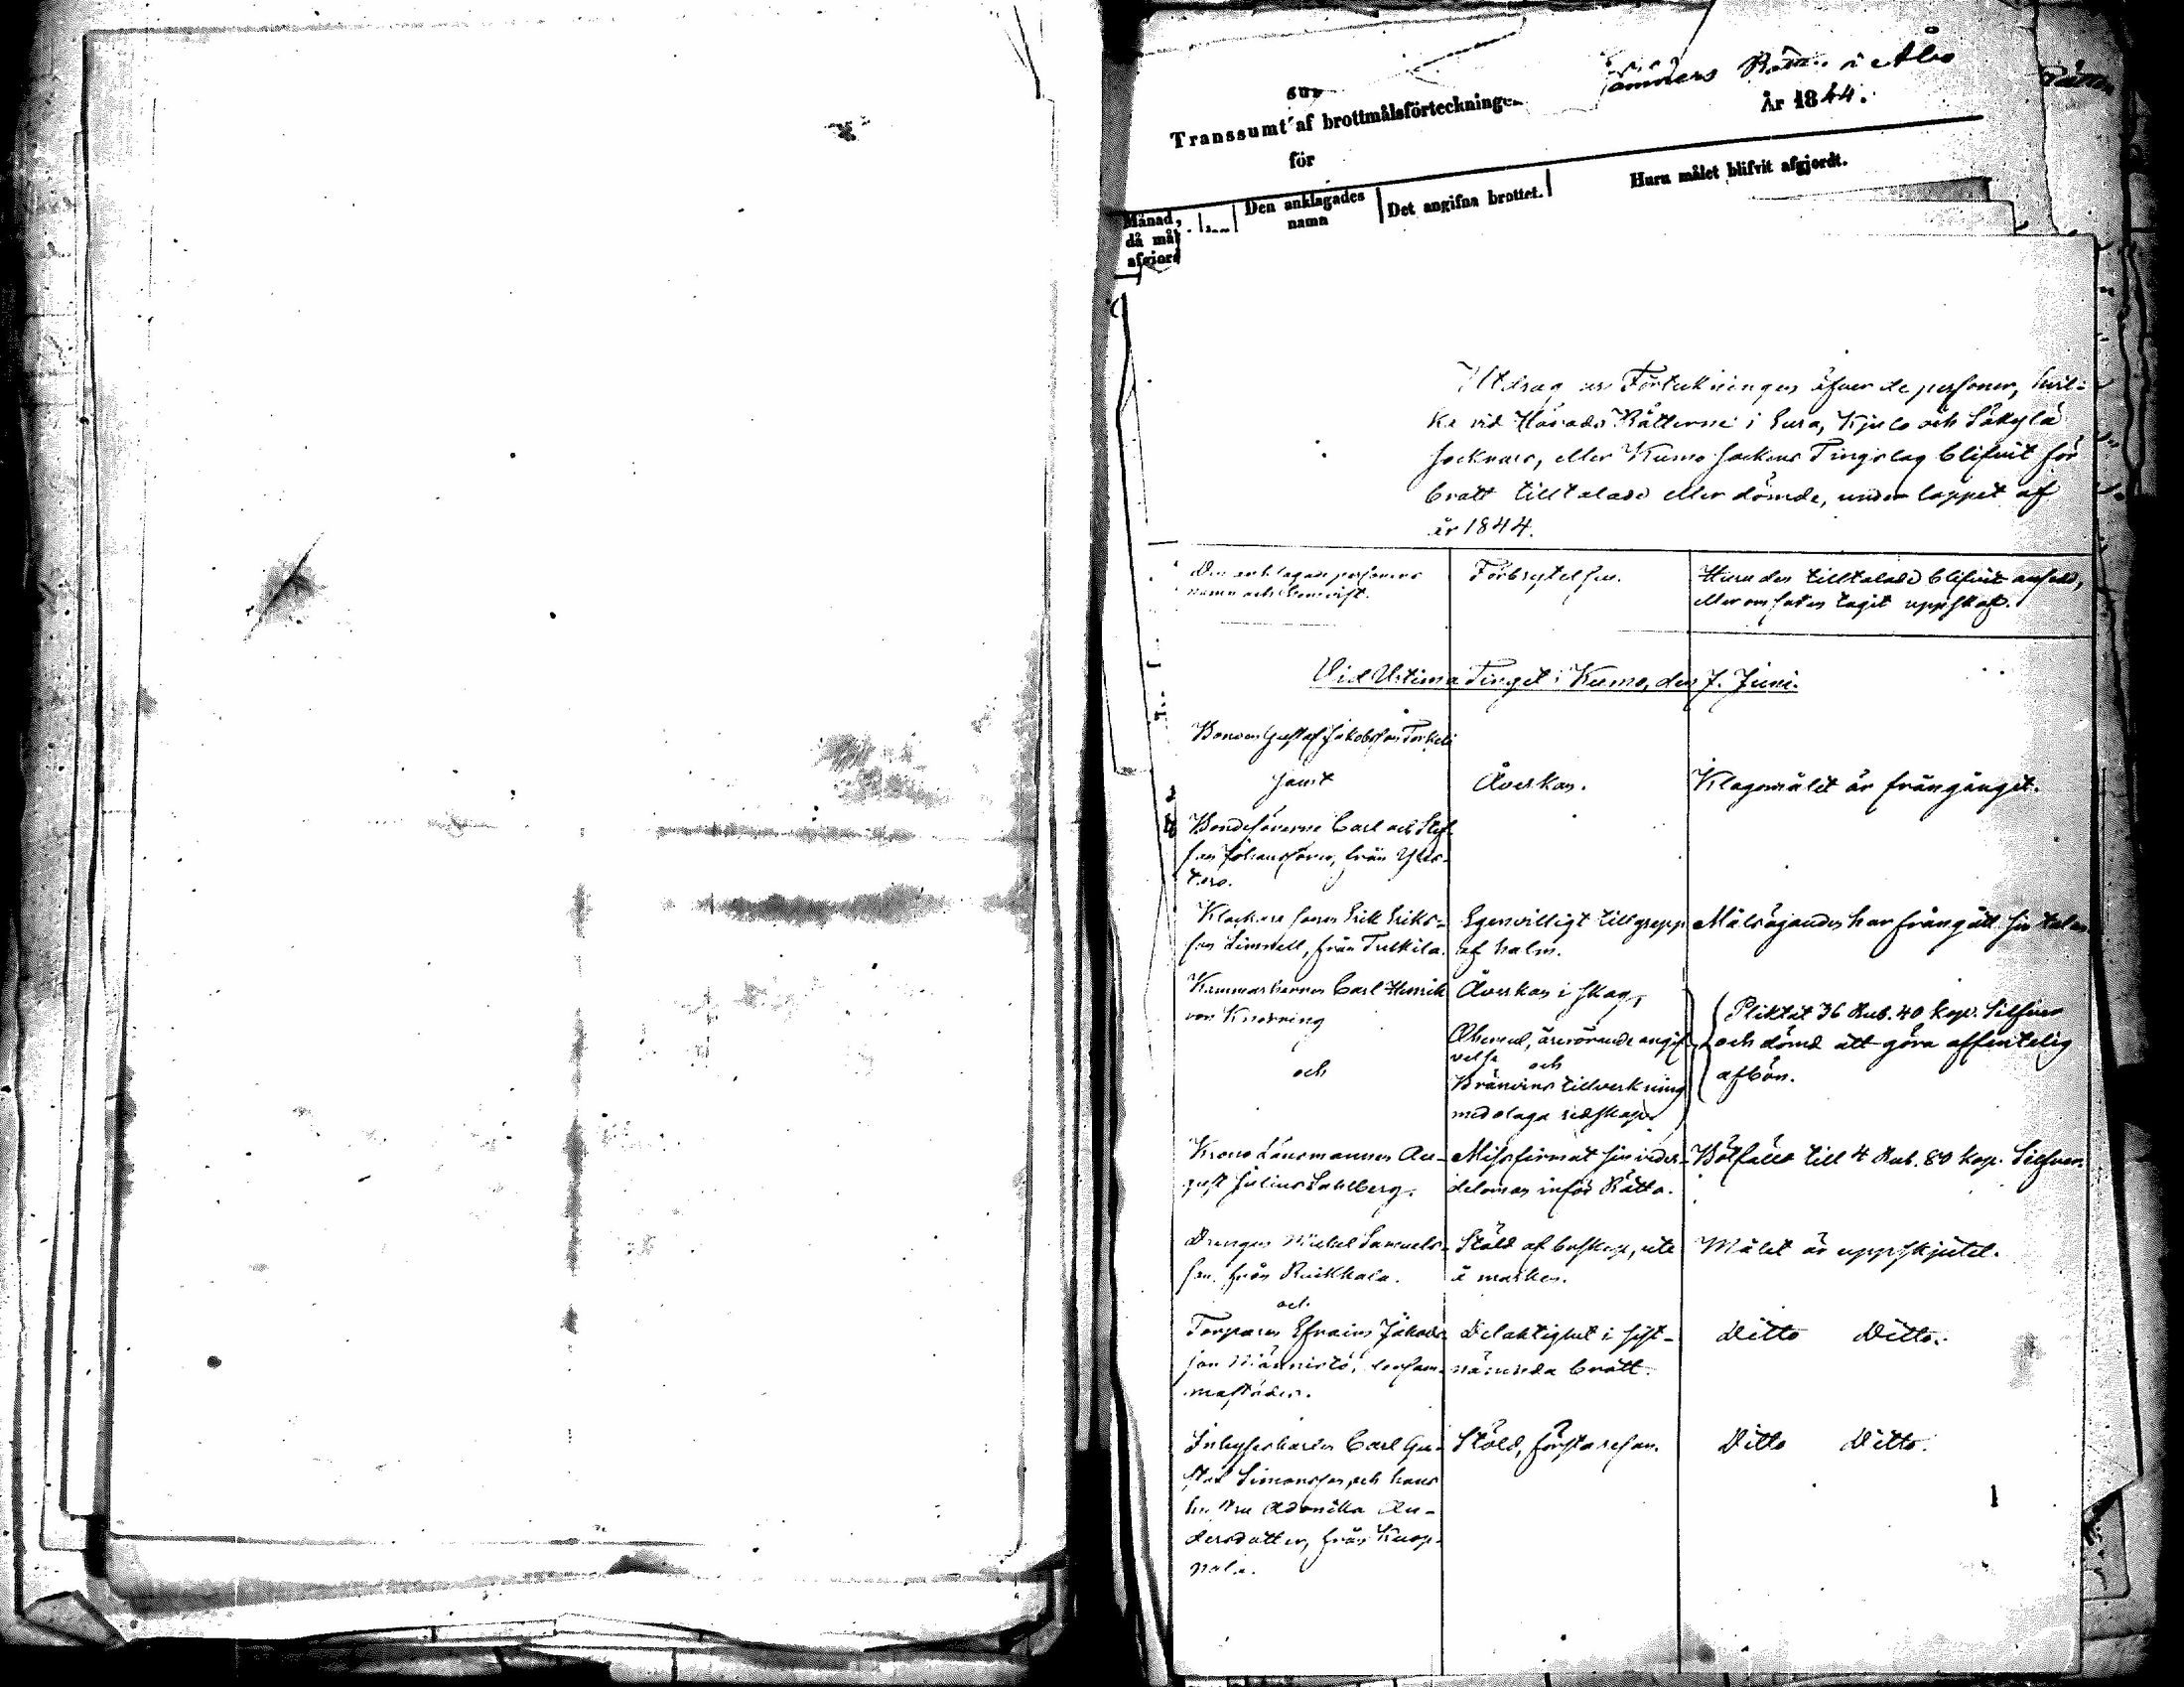 Transsumt af brottmålsförteckningen
för
i Åbo
År 1844.
Månad,
då mål
afgjord
Den anklagades
namn
Det angifna brottet.
Huru målet blifvit afgjordt.
Utdrag ur Förtekningen öfver de personer, hvil-
ka vid Härads Rätterne i Eura, Kjulo och Säkylä
Socknars, eller Kumo Sockens Tingslag blifvit för
brott tilltalade eller dömde, under loppet af
år 1844.
Den anklagade personens
namn och hemvist.
Förbrytelsen.
Huru den tilltalade blifvit ansedd,
eller om saken tagit uppskof.
Vid Urtima Tinget i Kumo, den 7. Juni.
Bonden Gustaf Jakobsson Torkeli
samt
Åverkan.
Klagomålet är frångånget.
Bondesönerne Carl och Stef-
fan Johanssöner, från Ylis-
taro.
Klockare sonen Erik Eriks-
son Limnell, från Tulkila.
Egenvilligt tillgrepp
af halm.
Målsäganden har frångått sin talan.
Kammarherren Carl Henrik
von Knorring
och
Åverkan i skog,
Oqvemd, ärerörande angif-
velse och
Bränvins tillverkning
med olaga redskap.
Pliktat 36 Rub. 40 kop. Silfver
och dömd att göra offentelig
afbön.
Krono Länsmannen Au-
gust Julius Sahlberg.
Missfirmat sin veder-
deloman inför Rätta.
Bötfälld till 4 Rub. 80 kop. Silfver.
Drengen Mickel Samuels-
son, från Ruikkala.
och
Stöld af boskap, ute
å marken.
Målet är uppskjutet.
Torparen Efraim Jakobs-
son Männistö, dersam-
mastädes.
Delaktighet i sist-
nämnda brott.
Ditto Ditto.
Inhysekarlen Carl Gu-
staf Simonsson, och hans
hustru Adonilla An-
dersdotter, från Kuop-
nala.
Stöld, första resan.
Ditto Ditto.
1